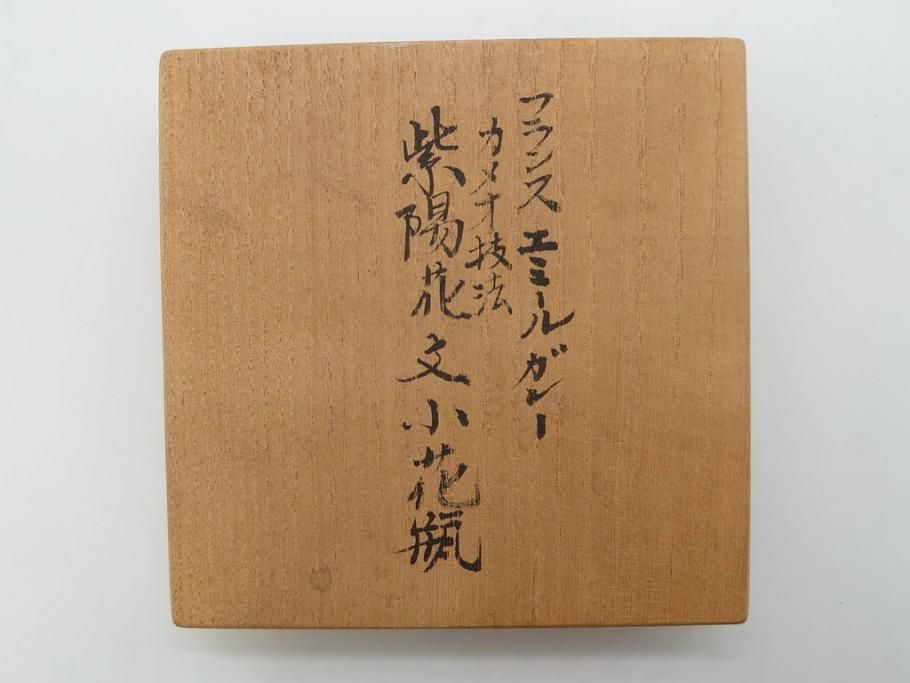 フランス エミールガレー
カメオ技法
紫陽花文小花瓶